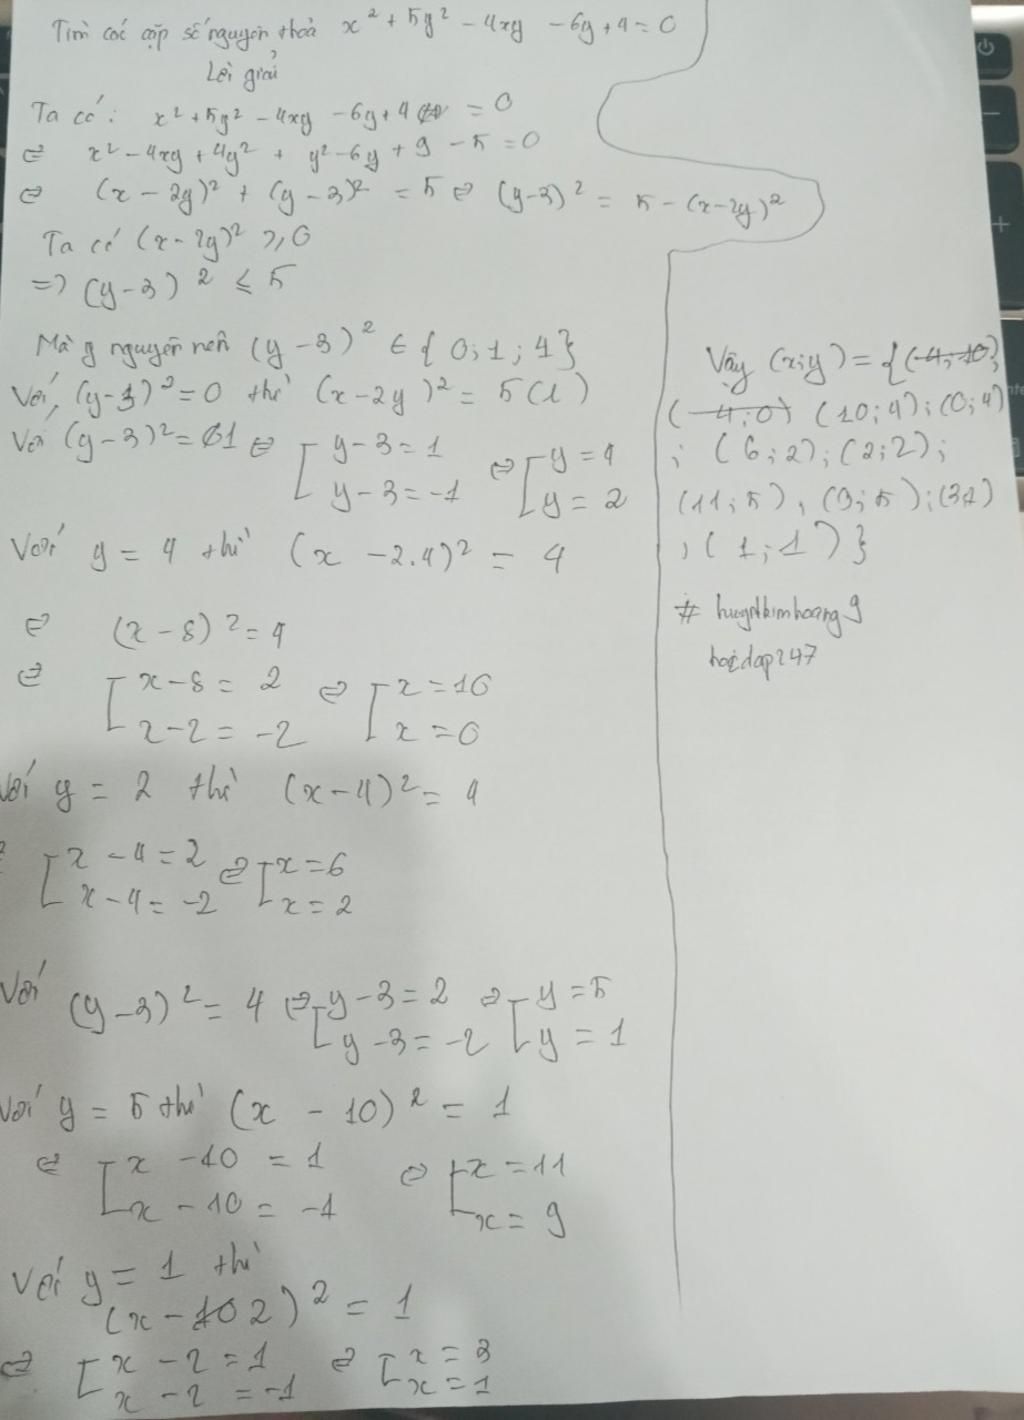 Tìm các cặp số nguyên thoả x² + 5y² - 4xy - 6y + 4 = 0
Lời giải
Ta có: x² + 5y² - 4xy - 6y + 4 = 0
⇔ x² - 4xy + 4y² + y² - 6y + 9 - 5 = 0
⇔ (x - 2y)² + (y - 3)² = 5 ⇔ (y-3)² = 5 - (x-2y)²
Ta có (x - 2y)² ≥ 0
=> (y - 3)² ≤ 5
Mà y nguyên nên (y - 3)² ∈ { 0; 1; 4}
Với (y-3)² = 0 thì (x - 2y)² = 5 (l)
Với (y - 3)² = 1 ⇔ [ y - 3 = 1 ⇔ [ y = 4
y - 3 = -1 y = 2
Với y = 4 thì (x - 2.4)² = 4
⇔ (x - 8)² = 4
⇔ [ x - 8 = 2 ⇔ [ x = 10
x - 2 = -2 x = 0
Với y = 2 thì (x - 4)² = 4
[ x - 4 = 2 ⇔ [ x = 6
x - 4 = -2 x = 2
Với (y - 3)² = 4 ⇔ [ y - 3 = 2 ⇔ [ y = 5
y - 3 = -2 y = 1
Với y = 5 thì (x - 10)² = 1
⇔ [ x - 10 = 1 ⇔ [ x = 11
x - 10 = -1 x = 9
Với y = 1 thì
(x - 2)² = 1
⇔ [ x - 2 = 1 ⇔ [ x = 3
x - 2 = -1 x = 1
Vậy (x;y) = {(-4;-10)
(-4;0) (10;4); (0;4)
; (6;2); (2;2);
(11;5), (9;5); (31)
; (1;1)}
hoidap247